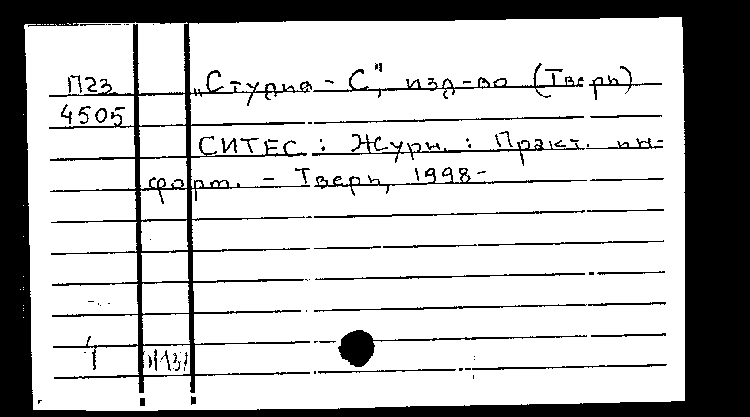 П23
4505
„Студия - С", изд-во (Тверь)
СИТЕС : Журн. : Практ. ин-
форм. - Тверь, 1998-